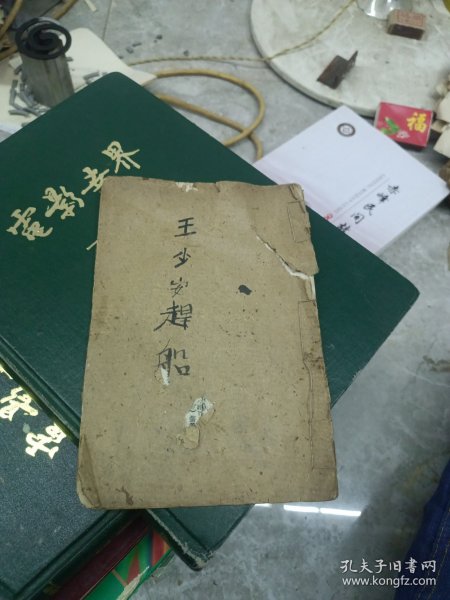 電影世界
王少安趕船
福
孔夫子旧书网
www.kongfz.com